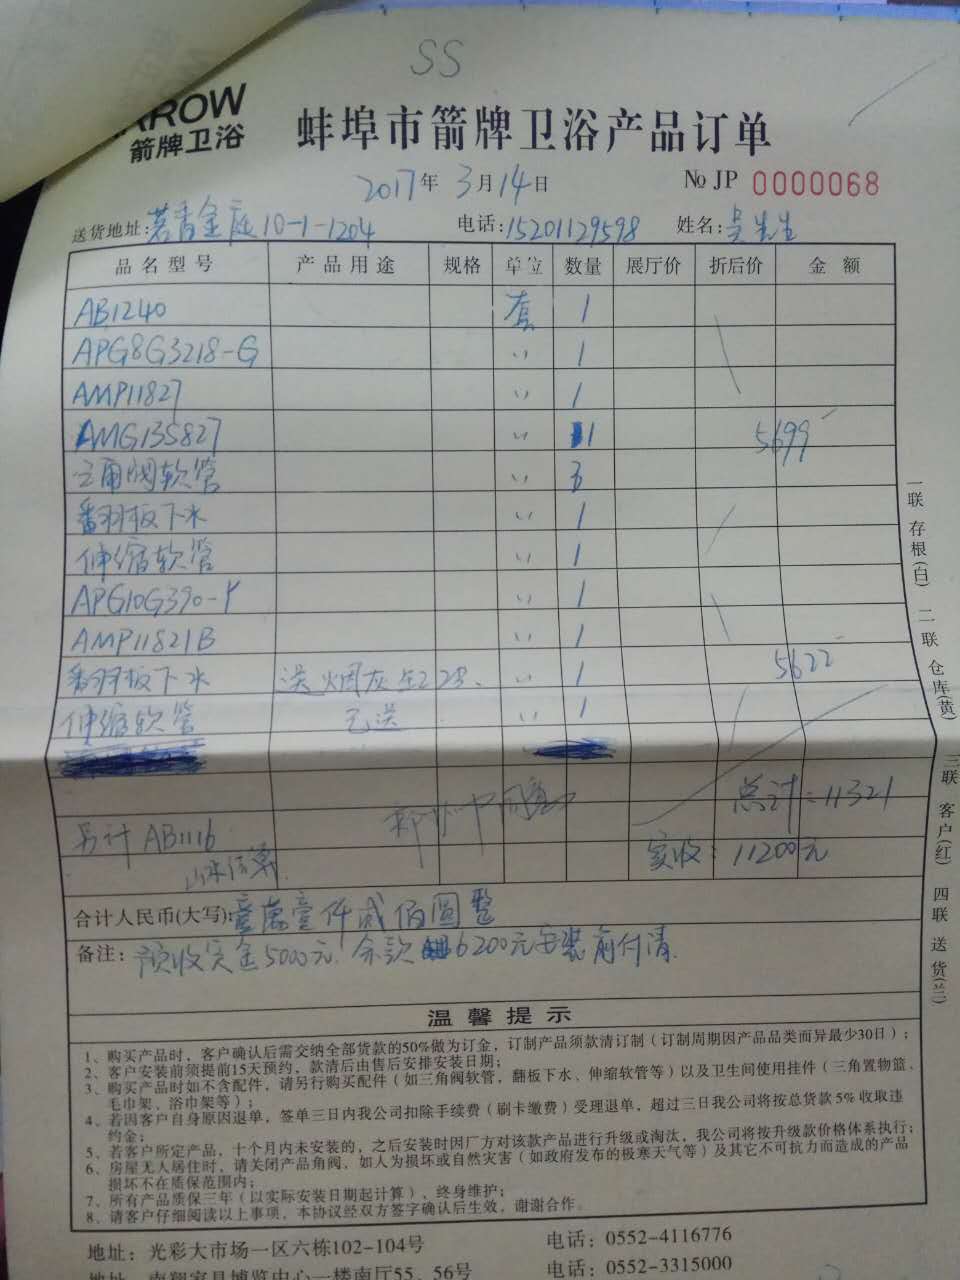 SS
ARROW
箭牌卫浴
蚌埠市箭牌卫浴产品订单
2017年 3月14日 №JP 0000068
送货地址:茗青金庭10-1-1204 电话:15201129598 姓名:吴先生
品名型号 产品用途 规格 单位 数量 展厅价 折后价 金额
AB1240 套 1
APG8G3218-G 〃 1
AMP11827 〃 1
AMG135827 〃 1 5699
三角阀软管 〃 3
翻板下水 〃 1
伸缩软管 〃 1
APG10G390-Y 〃 1
AMP11821B 〃 1
翻板下水 送烟灰 〃 1 5622
伸缩软管 已送 〃 1
总计:11321
另计AB1116
实收:11200元
合计人民币(大写):壹萬壹仟贰佰圆整
备注: 预收定金5000元!余款6200元安装前付清.
温馨提示
1、购买产品时，客户确认后需交纳全部货款的50%做为订金，订制产品须款清订制（订制周期因产品品类而异最少30日）；
2、客户安装前须提前15天预约，款清后由售后安排安装日期；
3、购买产品时如不含配件，请另行购买配件（如三角阀软管，翻板下水、伸缩软管等）以及卫生间使用挂件（三角置物篮、
毛巾架、浴巾架等）；
4、若因客户自身原因退单，签单三日内我公司扣除手续费（刷卡缴费）受理退单，超过三日我公司将按总货款5%收取违
约金；
5、若客户所定产品，十个月内未安装的，之后安装时因厂方对该款产品进行升级或淘汰，我公司将按升级款价格体系执行；
6、房屋无人居住时，请关闭产品角阀，如人为损坏或自然灾害（如政府发布的极寒天气等）及其它不可抗力而造成的产品
损坏不在质保范围内；
7、所有产品质保三年（以实际安装日期起计算）、终身维护；
8、请客户仔细阅读以上事项，本协议经双方签字确认后生效，谢谢合作。
地址：光彩大市场一区六栋102-104号 电话：0552-4116776
南翔家具博览中心一楼南厅55、56号 电话：0552-3315000
一联存根(白) 二联仓库(黄) 三联客户(红) 四联送货(兰)